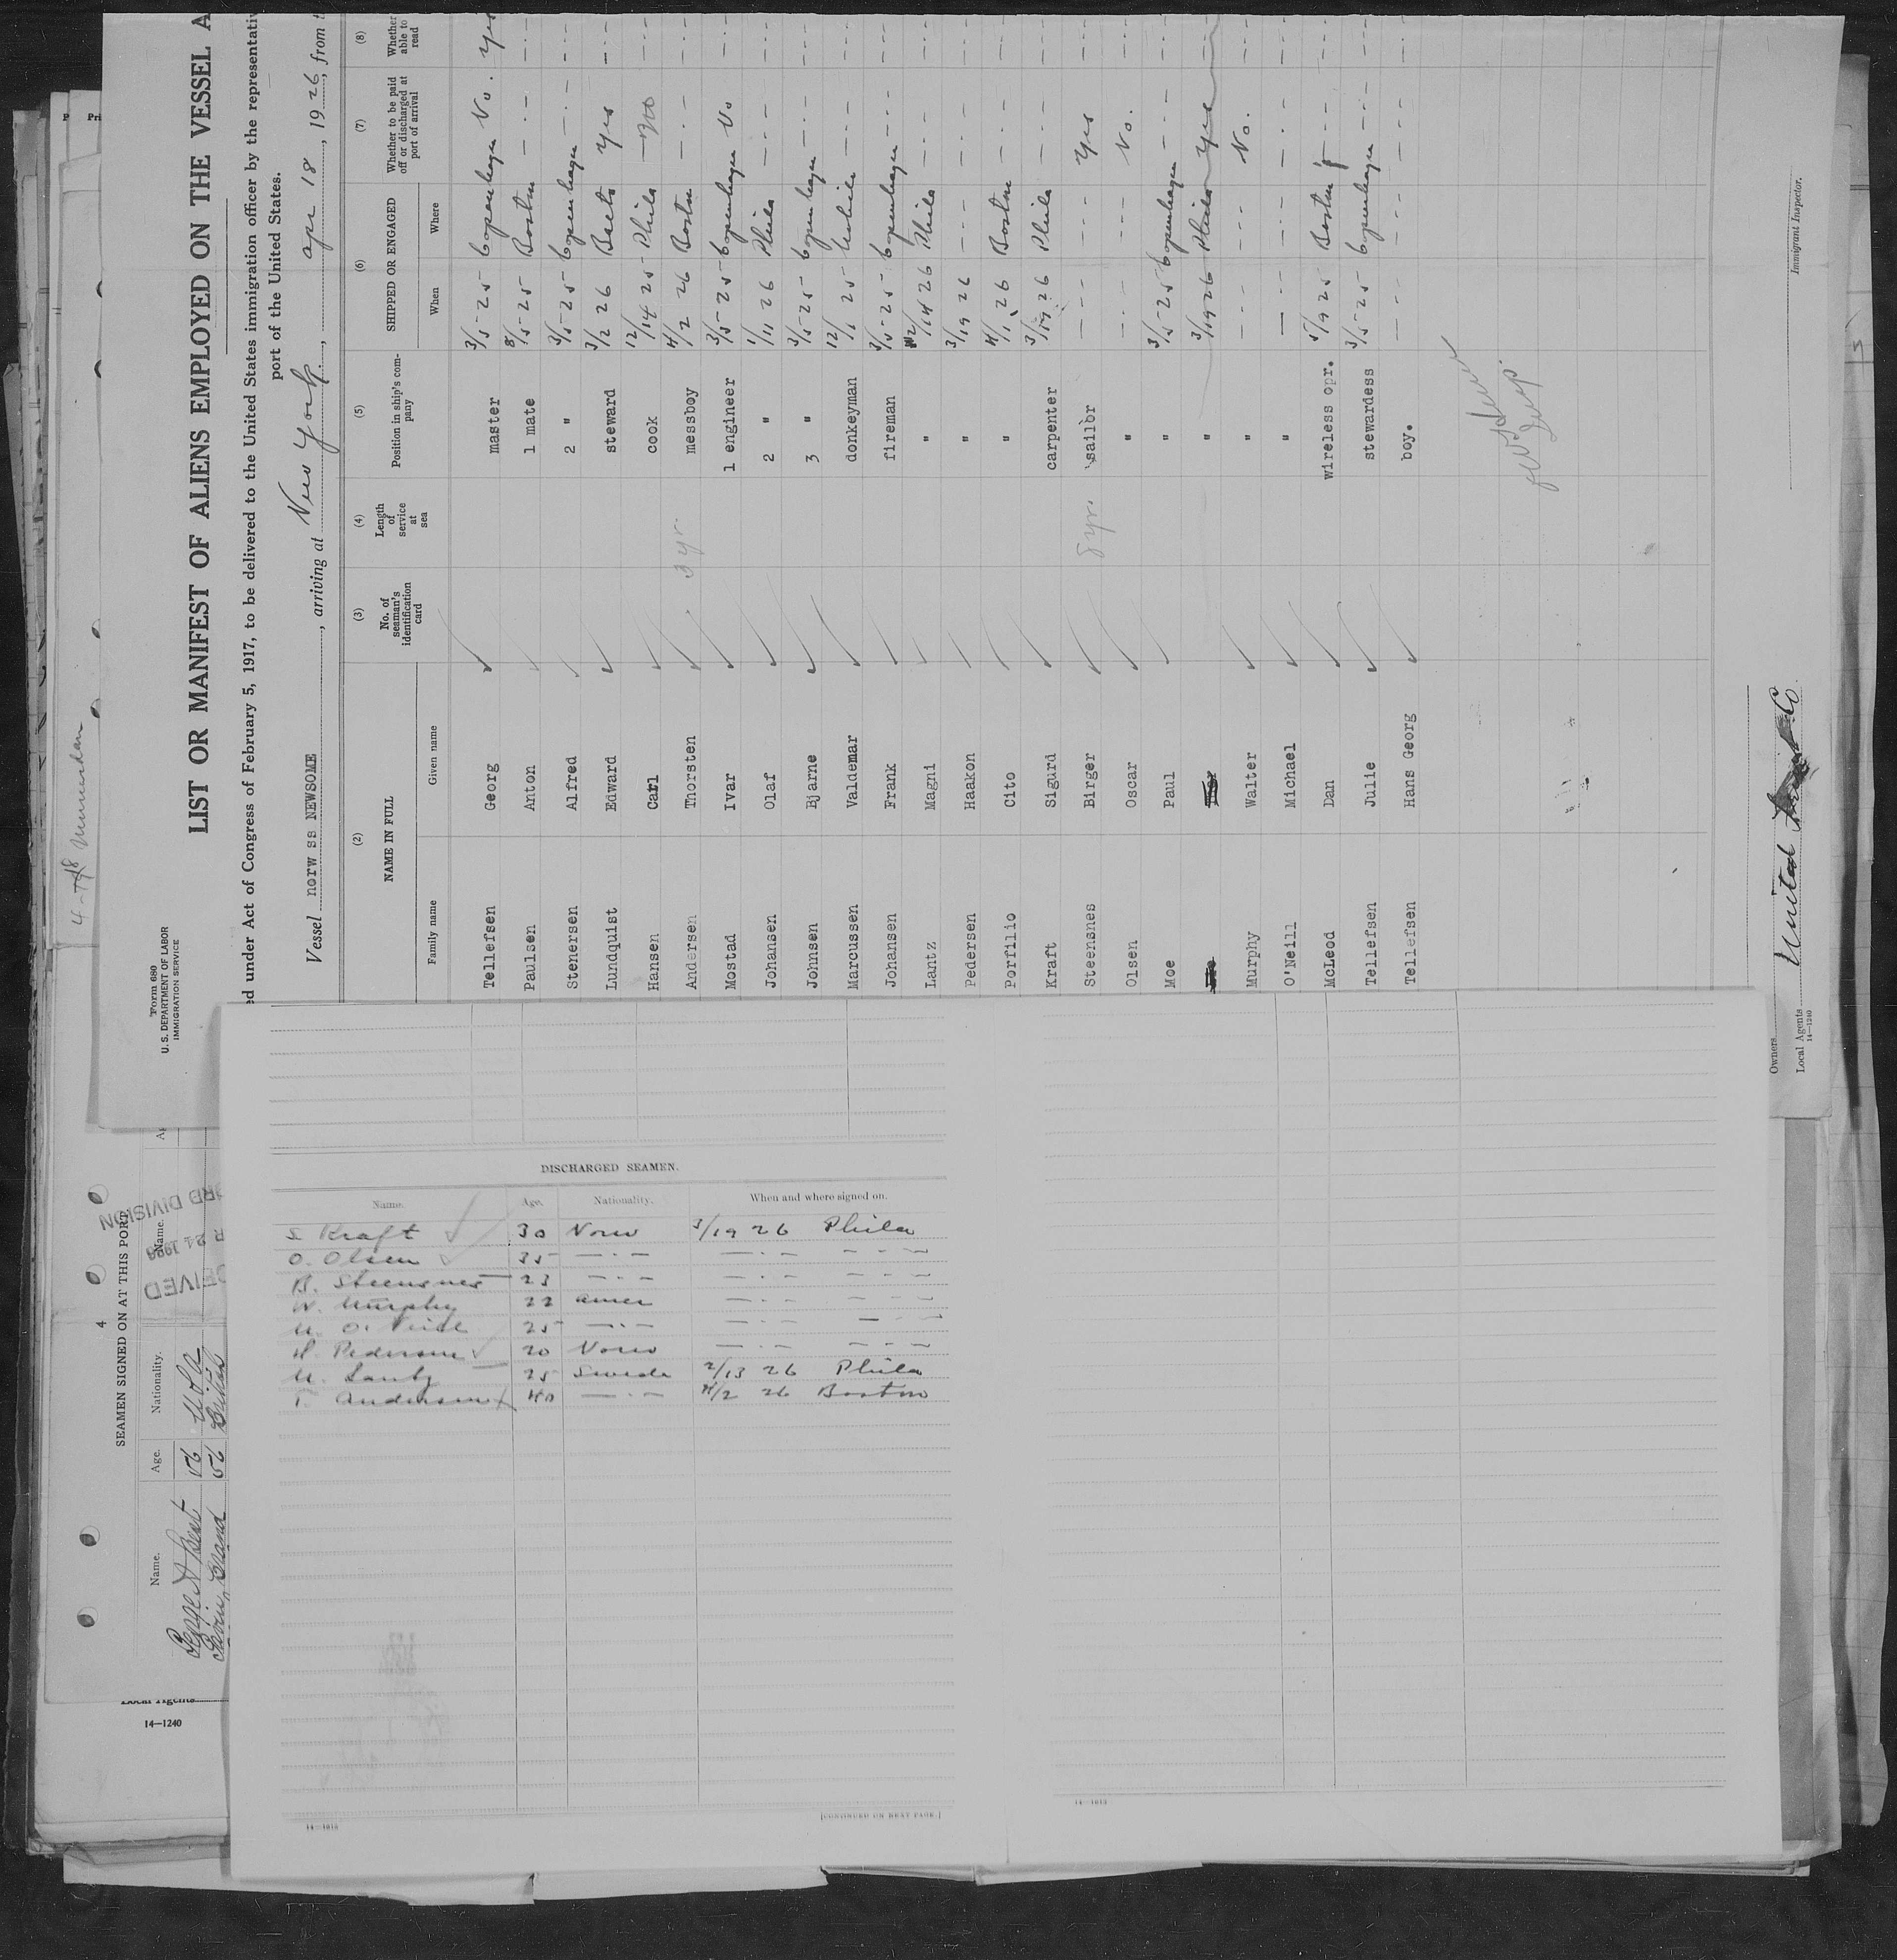 4-18 Munerdan
Form 680
U. S. DEPARTMENT OF LABOR
IMMIGRATION SERVICE
LIST OR MANIFEST OF ALIENS EMPLOYED ON THE VESSEL A
ed under Act of Congress of February 5, 1917, to be delivered to the United States immigration officer by the representativ
port of the United States.
Vessel norw ss NEWSOME, arriving at New York, apr 18, 1926, from t
(2) (3) (4) (5) (6) (7) (8)
NAME IN FULL
Family name Given name
No. of seaman's identification card
Length of service at sea
Position in ship's company
SHIPPED OR ENGAGED
When Where
Whether to be paid off or discharged at port of arrival
Whether able to read
Tellefsen Georg master 3/5-25 Copenhagen No. yes
Paulsen Anton 1 mate 8/5-25 Boston — · — — · —
Stenersen Alfred 2 " 3/5-25 Copenhagen — · — — · —
Lundquist Edward steward 3/2 26 Balto yes — · —
Hansen Carl cook 12/14 25 Phila No — · —
Andersen Thorsten 3 yr. messboy 4/2 26 Boston — · — — · —
Mostad Ivar 1 engineer 3/5-25 Copenhagen No — · —
Johansen Olaf 2 " 1/11 26 Phila — · — — · —
Johnsen Bjarne 3 " 3/5-25 Copenhagen — · — — · —
Marcussen Valdemar donkeyman 12/1 25 Mobile — · — — · —
Johansen Frank fireman 3/5-25 Copenhagen — · — — · —
Lantz Magni " 2/14 26 Phila — · — — · —
Pedersen Haakon " 3/19 26 — · — — · — — · —
Porfilio Cito " 4/1 26 Boston — · — — · —
Kraft Sigurd carpenter 3/19 26 Phila — · — — · —
Steensnes Birger 8 yr. sailor — · — — · — Yes — · —
Olsen Oscar " — · — — · — No. — · —
Moe Paul " 3/5-25 Copenhagen — · — — · —
" 3/19 26 Phila Yes — · —
Murphy Walter " — · — — · — No. — · —
O'Neill Michael " — · — — · — — · — — · —
McLeod Dan wireless opr. 5/9 25 Boston — · — — · —
Tellefsen Julie stewardess 3/5-25 Copenhagen — · — — · —
Tellefsen Hans Georg boy. — · — — · — — · — — · —
Insp.
Immigrant Inspector.
Owners
Local Agents United Fruit Co.
14—1240
4
SEAMEN SIGNED ON AT THIS PORT
Name. Age. Nationality. Name.
56 British
RECORD DIVISION
Local Agents
14—1240
DISCHARGED SEAMEN.
Name. Age. Nationality. When and where signed on.
S. Kraft 30 Norw 3/19 26 Phila
O. Olsen 35 — · — — · — — · —
B. Steensnes 23 — · — — · — — · —
W. Murphy 22 amer — · — — · —
M. O'Neill 25 — · — — · — — · —
H. Pedersen 20 Norw — · — — · —
M. Lantz 25 Swede 2/13 26 Phila
T. Andersen 40 — · — 4/2 26 Boston
[CONTINUED ON NEXT PAGE.]
14—1613
14—1613